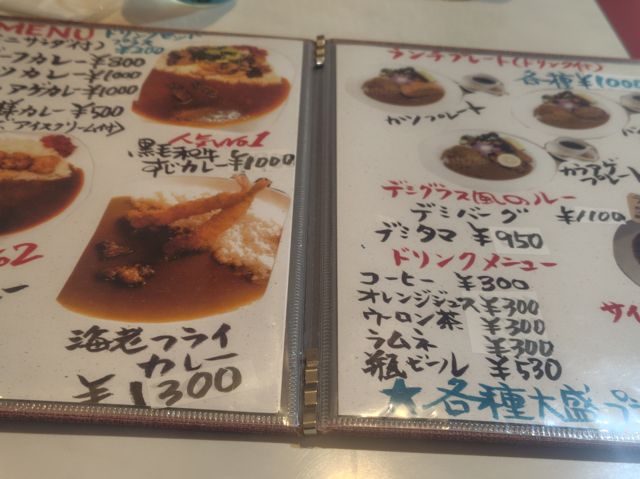 MENU ドリンクセット
サラダ付) ¥200
ーフカレー ¥800
ツカレー ¥1000
アゲカレー ¥1000
様カレー ¥500
アイスクリーム付)
人気No.1
黒毛和牛
すじカレー ¥1000
o2
海老フライ
カレー
¥1300
ランチプレート(ドリンク付)
各種¥1000
カツプレート
デミグラス風のルー
デミバーグ ¥1100
デミタマ ¥950
ドリンクメニュー
コーヒー ¥300
オレンジジュース ¥300
ウーロン茶 ¥300
ラムネ ¥300
瓶ビール ¥530
サイ
★各種大盛